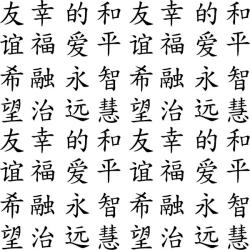 友幸的和友幸的和
谊福爱平谊福爱平
希融永智希融永智
望治远慧望治远慧
友幸的和友幸的和
谊福爱平谊福爱平
希融永智希融永智
望治远慧望治远慧